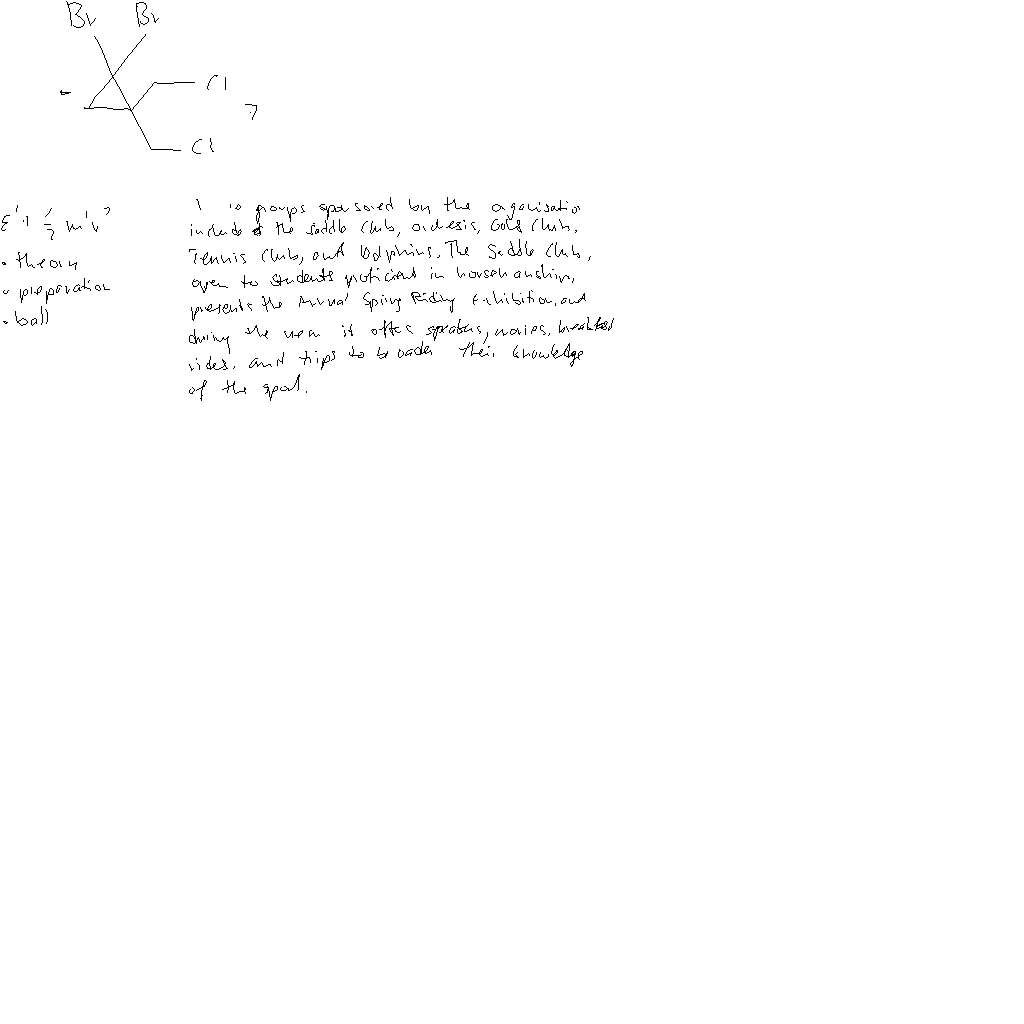 Br Br
Cl
Cl
groups sponsored by the organisation
include the Saddle Club, orchesis, Golf Club,
Tennis Club, and Dolphins. The Saddle Club,
open to students proficient in horsemanship,
presents the Annual Spring Riding Exhibition, and
during the it offers speakers, movies, breakfast
rides, and trips to broaden their knowledge
of the sport.
• theory
• preparation
• ball